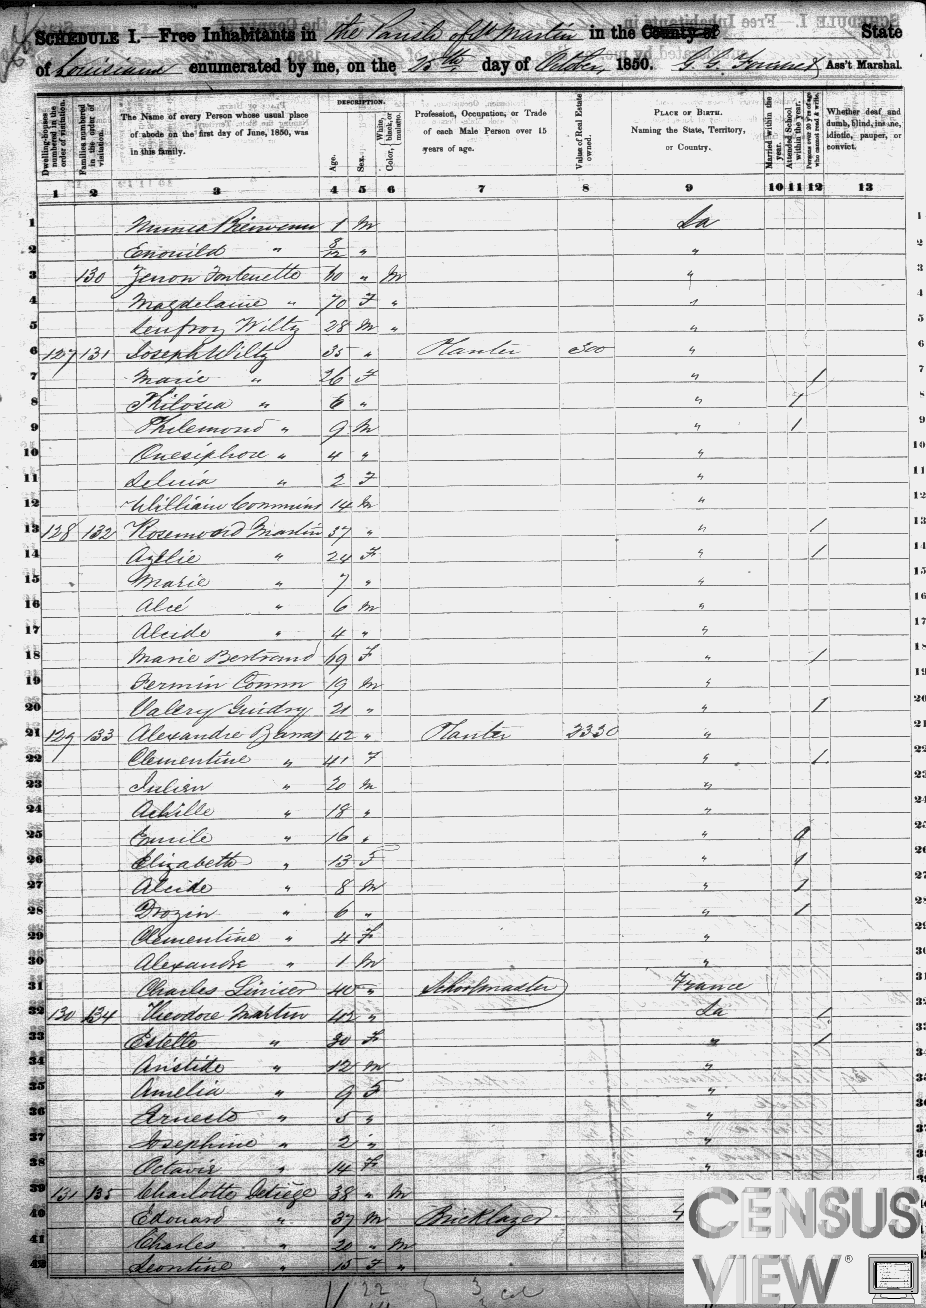 SCHEDULE I.—Free Inhabitants in the Parish of St Martin in the County of State
of Louisiana enumerated by me, on the 25th day of October, 1850. Ass't Marshal.
Dwelling-houses numbered in the order of visitation.
Families numbered in the order of visitation.
The Name of every Person whose usual place of abode on the first day of June, 1850, was in this family.
DESCRIPTION.
Age.
Sex.
Color, White, black, or mulatto.
Profession, Occupation, or Trade of each Male Person over 15 years of age.
Value of Real Estate owned.
PLACE OF BIRTH.
Naming the State, Territory, or Country.
Married within the year.
Attended School within the year.
Persons over 20 y'rs of age who cannot read & write.
Whether deaf and dumb, blind, insane, idiotic, pauper, or convict.
1 2 3 4 5 6 7 8 9 10 11 12 13
1 Bienvenu 1 M La 1
2 Enouild " 8/12 " " 2
3 130 Zenon Fontenette 80 " M " 3
4 Magdelaine " 70 F " " 4
5 Wiltz 28 M " " 5
6 127 131 Joseph Wiltz 35 " Planter 500 " 6
7 Marie " 26 F " 1 7
8 Philosia " 6 " " 1 8
9 Philemond " 9 M " 1 9
10 Onesiphore " 4 " " 10
11 " 2 F " 11
12 William Commins 14 M " 12
13 128 132 Rosemond Martin 37 " " 1 13
14 Azélie " 24 F " 1 14
15 Marie " 7 " " 15
16 Alcé " 6 M " 16
17 Alcide " 4 " " 17
18 Marie Bertrand 69 F " 1 18
19 Fermin 19 M " 19
20 Valery Guidry 21 " " 1 20
21 129 133 Alexandre Barras 42 " Planter 2330 " 21
22 Clementine " 41 F " 1 22
23 Julien " 20 M " 23
24 Achille " 18 " " 24
25 Emile " 16 " " 1 25
26 Elizabeth " 13 F " 1 26
27 Alcide " 8 M " 1 27
28 Drozin " 6 " " 1 28
29 Clementine " 4 F " 29
30 Alexandre " 1 M " 30
31 Charles 40 " Schoolmaster France 31
32 130 134 Theodore Martin 42 " La 1 32
33 Estelle " 30 F " 1 33
34 Aristide " 12 M " 34
35 Amelia " 9 F " 35
36 Ernecte " 5 " " 36
37 Josephine " 2 " " 37
38 Octavie " 14 F " 38
39 131 135 Charlotte Detiège 38 " M 39
40 Edouard " 37 M Bricklayer "
41 Charles " 20 " M
42 Leontine " 15 F "
22
3
CENSUS
VIEW®